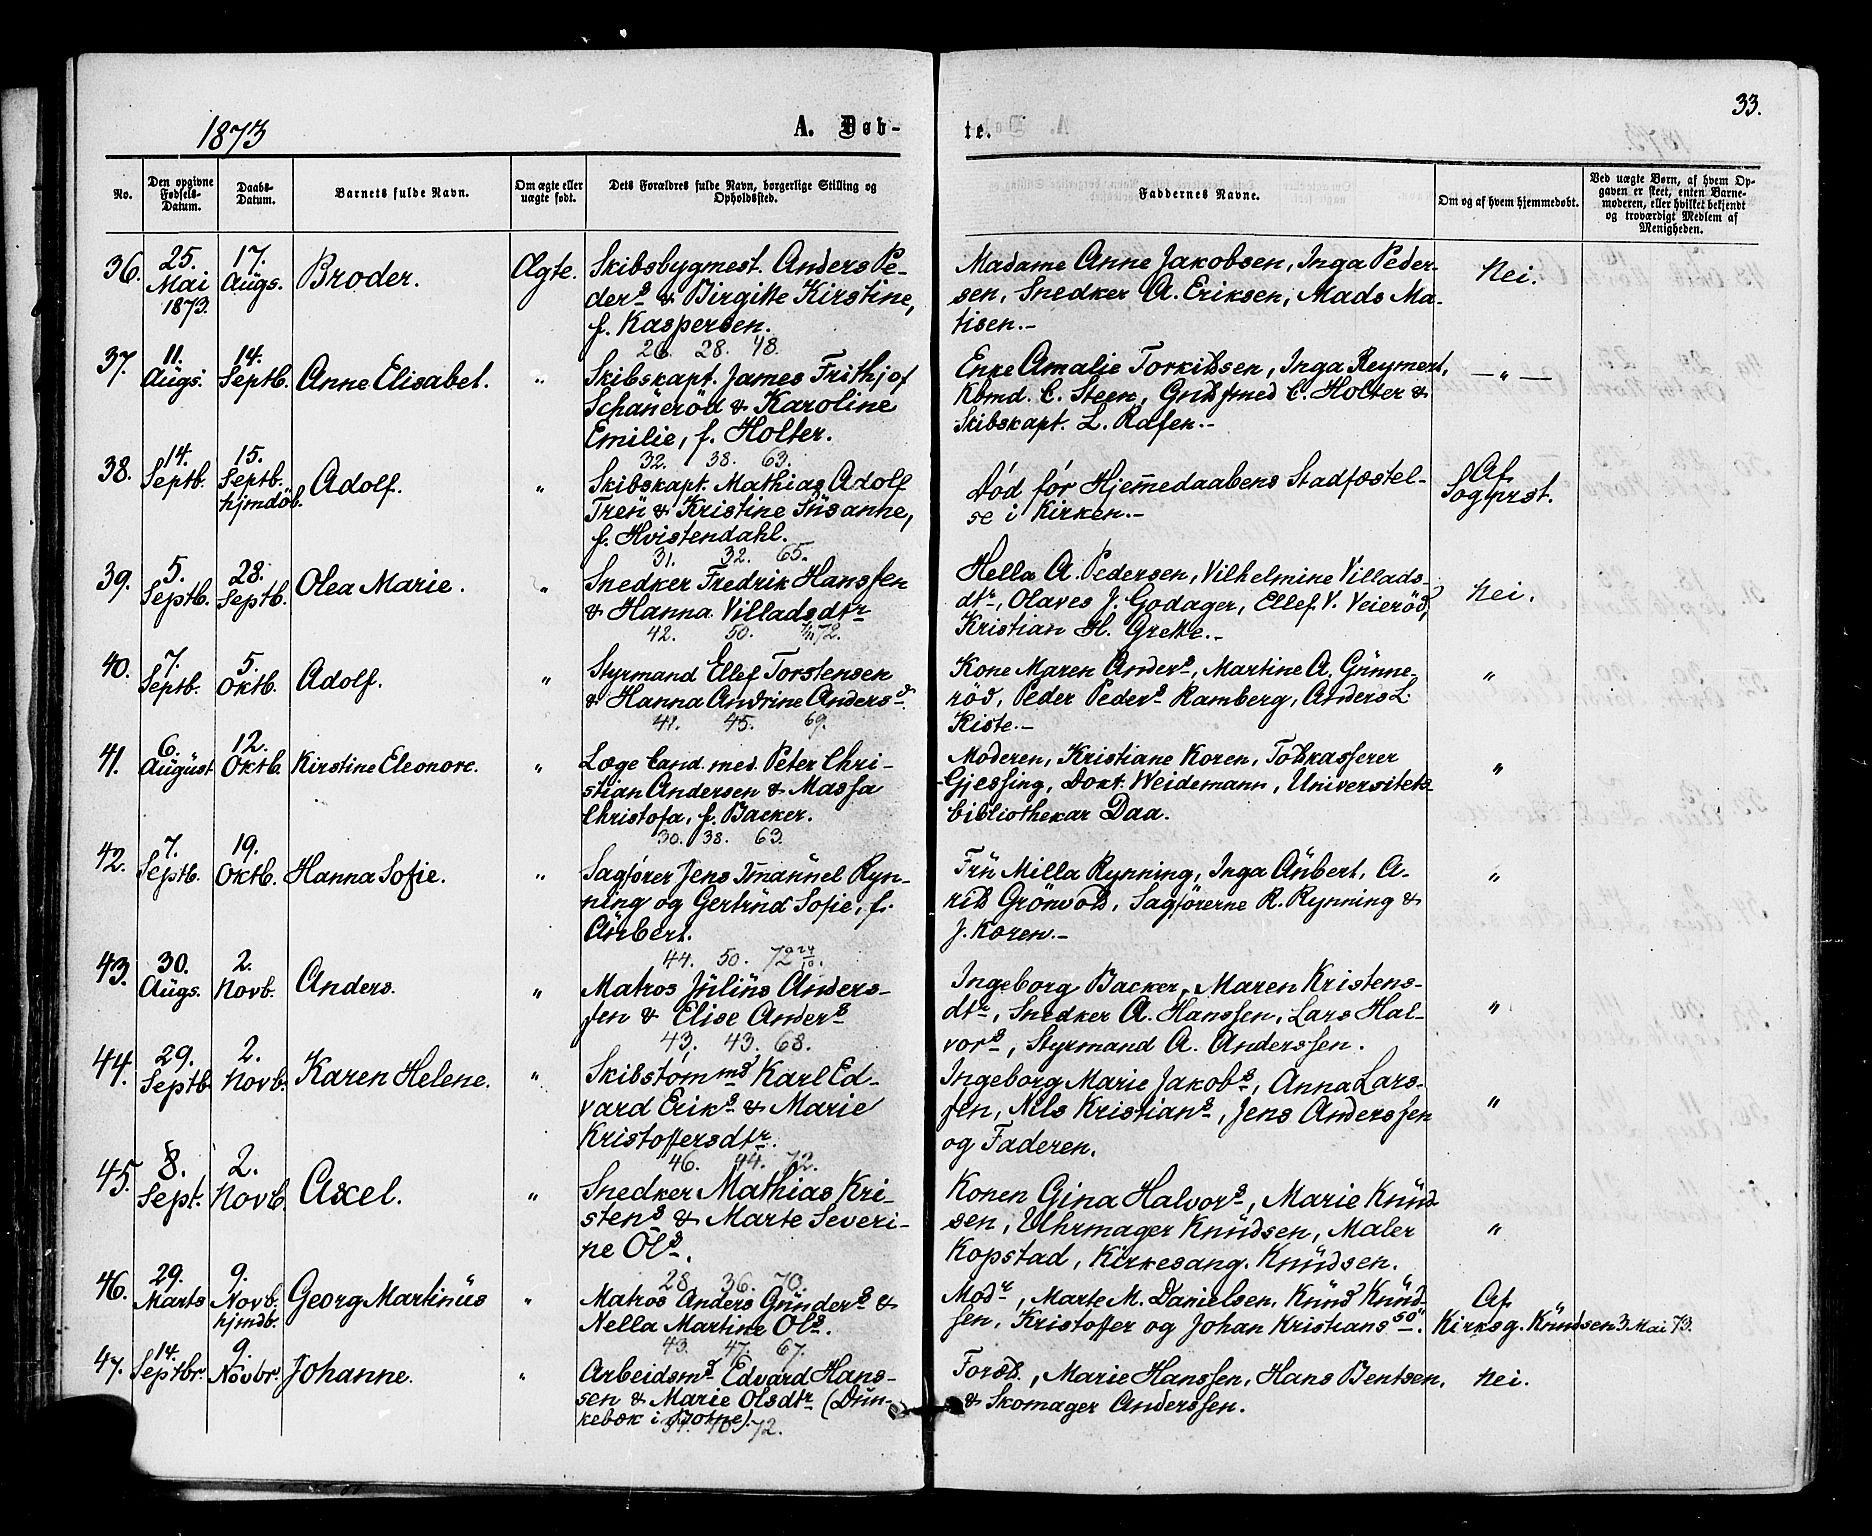 33.
1873
A. Døb-
te.
No.
Den opgivne Fødsels-Datum.
Daabs-Datum.
Barnets fulde Navn.
Om ægte eller uægte født.
Dets Forældres fulde Navn, borgerlige Stilling og Opholdssted.
Faddernes Navne.
Om og af hvem hjemmedøbt.
Ved uægte Børn, af hvem Opgaven er skeet, enten Barnemoderen, eller hvilket bekjendt og troværdigt Medlem af Menigheden.
36.
25.
Mai
1873.
17.
Augs.
Broder.
Ægte.
Skibsbygmest. Anders Pe-
ders & Birgitte Kirstine,
f. Kaspersen.
26. 28. 48.
Madame Anne Jakobsen, Inga Peder-
sen, Snedker A. Eriksen, Mads Ma-
tisen.-
Nei.
37.
11.
Augs.
14.
Septb.
Anne Elisabet.
"
Skibskapt. James Frithjof
Schanerød & Karoline
Emilie, f. Holter.
32. 38. 63.
Enke Amalie Torkildsen, Inga Reymert,
Kbmd. C. Steen, C. Holter &
Skibskapt. L. Rafen.-
— " —
38.
14.
Septb.
15.
Septb.
hjmdöb.
Adolf.
"
Skibskapt. Mathias Adolf
Tren & Kristine Susanne,
f. Hvistendahl.
31. 32. 65.
Død før Hjemmedaabens Stadfæstel-
se i Kirken.-
Af
Sognprst.
39.
5.
Septb.
28.
Septb.
Olea Marie.
"
Snedker Fredrik Hanssen
& Hanna Villadsdtr
42. 50. 72.
Hella A. Pedersen, Vilhelmine Villads-
dtr, Olaves J. Godager, Ellef V. Veierød,
Kristian H. Grette.-
Nei.
40.
7.
Septb.
5.
Oktb.
Adolf.
"
Styrmand Ellef Torstensen
& Hanna Andrine Andersd.
41. 45. 69.
Kone Maren Anders, Martine A. Gunne-
röd, Peder Peders Ramberg, Anders L.
Kiste.-
"
41.
6.
August
12.
Oktb.
Kirstine Eleonore.
"
Læge Cand. med. Peter Chri-
stian Andersen & Massa
Christofa, f. Backer.
30. 38. 63.
Moderen, Kristiane Koren, Toldkasserer
Gjessing, Dokt. Weidemann, Universitets-
bibliothekar Daa.
"
42.
7.
Septb.
19.
Oktb.
Hanna Sofie.
"
Sagfører Jens Imanuel Ryn-
ning og Gertrud Sofie, f.
Aubert.
44. 50. 72 24/10.
Fru Milla Rynning, Inga Aubert, A-
rild Grönvold, Sagförerne R. Rynning &
J. Koren.-
"
43.
30.
Augs.
2.
Novb.
Anders.
"
Matros Julius Anders-
sen & Elise Anders
43. 43. 68.
Ingeborg Backer, Maren Kristens-
dtr, Snedker A. Hanssen, Lars Hal-
vors, Styrmand A. Anderssen.
"
44.
29.
Septb.
2.
Novb.
Karen Helene.
"
Skibstømmd Karl Ed-
vard Eriks & Marie
Kristoffersdtr.
46. 44. 72.
Ingeborg Marie Jakobs, Anna Lars-
sen, Nils Kristians, Jens Anderssen
og Faderen.
"
45.
8.
Sept.
2.
Novb.
Axel.
"
Snedker Mathias Kri-
stens & Marte Severi-
ne Ols.
28. 36. 70.
Konen Gina Halvors, Marie Knud-
sen, Uhrmager Knudsen, Maler
Kopstad, Kirkesang. Knudsen.
"
46.
29.
Marts
9.
Novb.
hjmdb.
Georg Martinus
"
Matros Anders Gunders &
Nella Martine Ols.
43. 47. 67.
Modr, Marte M. Danielsen, Knud Knud-
sen, Kristoffer og Johan Kristians.
Af
Kirksg. Knudsen 3 Mai 73.
47.
14.
Septbr.
9.
Novbr.
Johanne.
"
Arbeidsmd Edvard Hans-
sen & Marie Olsdtr (Dun-
kebæk i Botne).
72.
Forsb., Marie Hanssen, Hans Bentsen,
& Skomager Anderssen.
Nei.